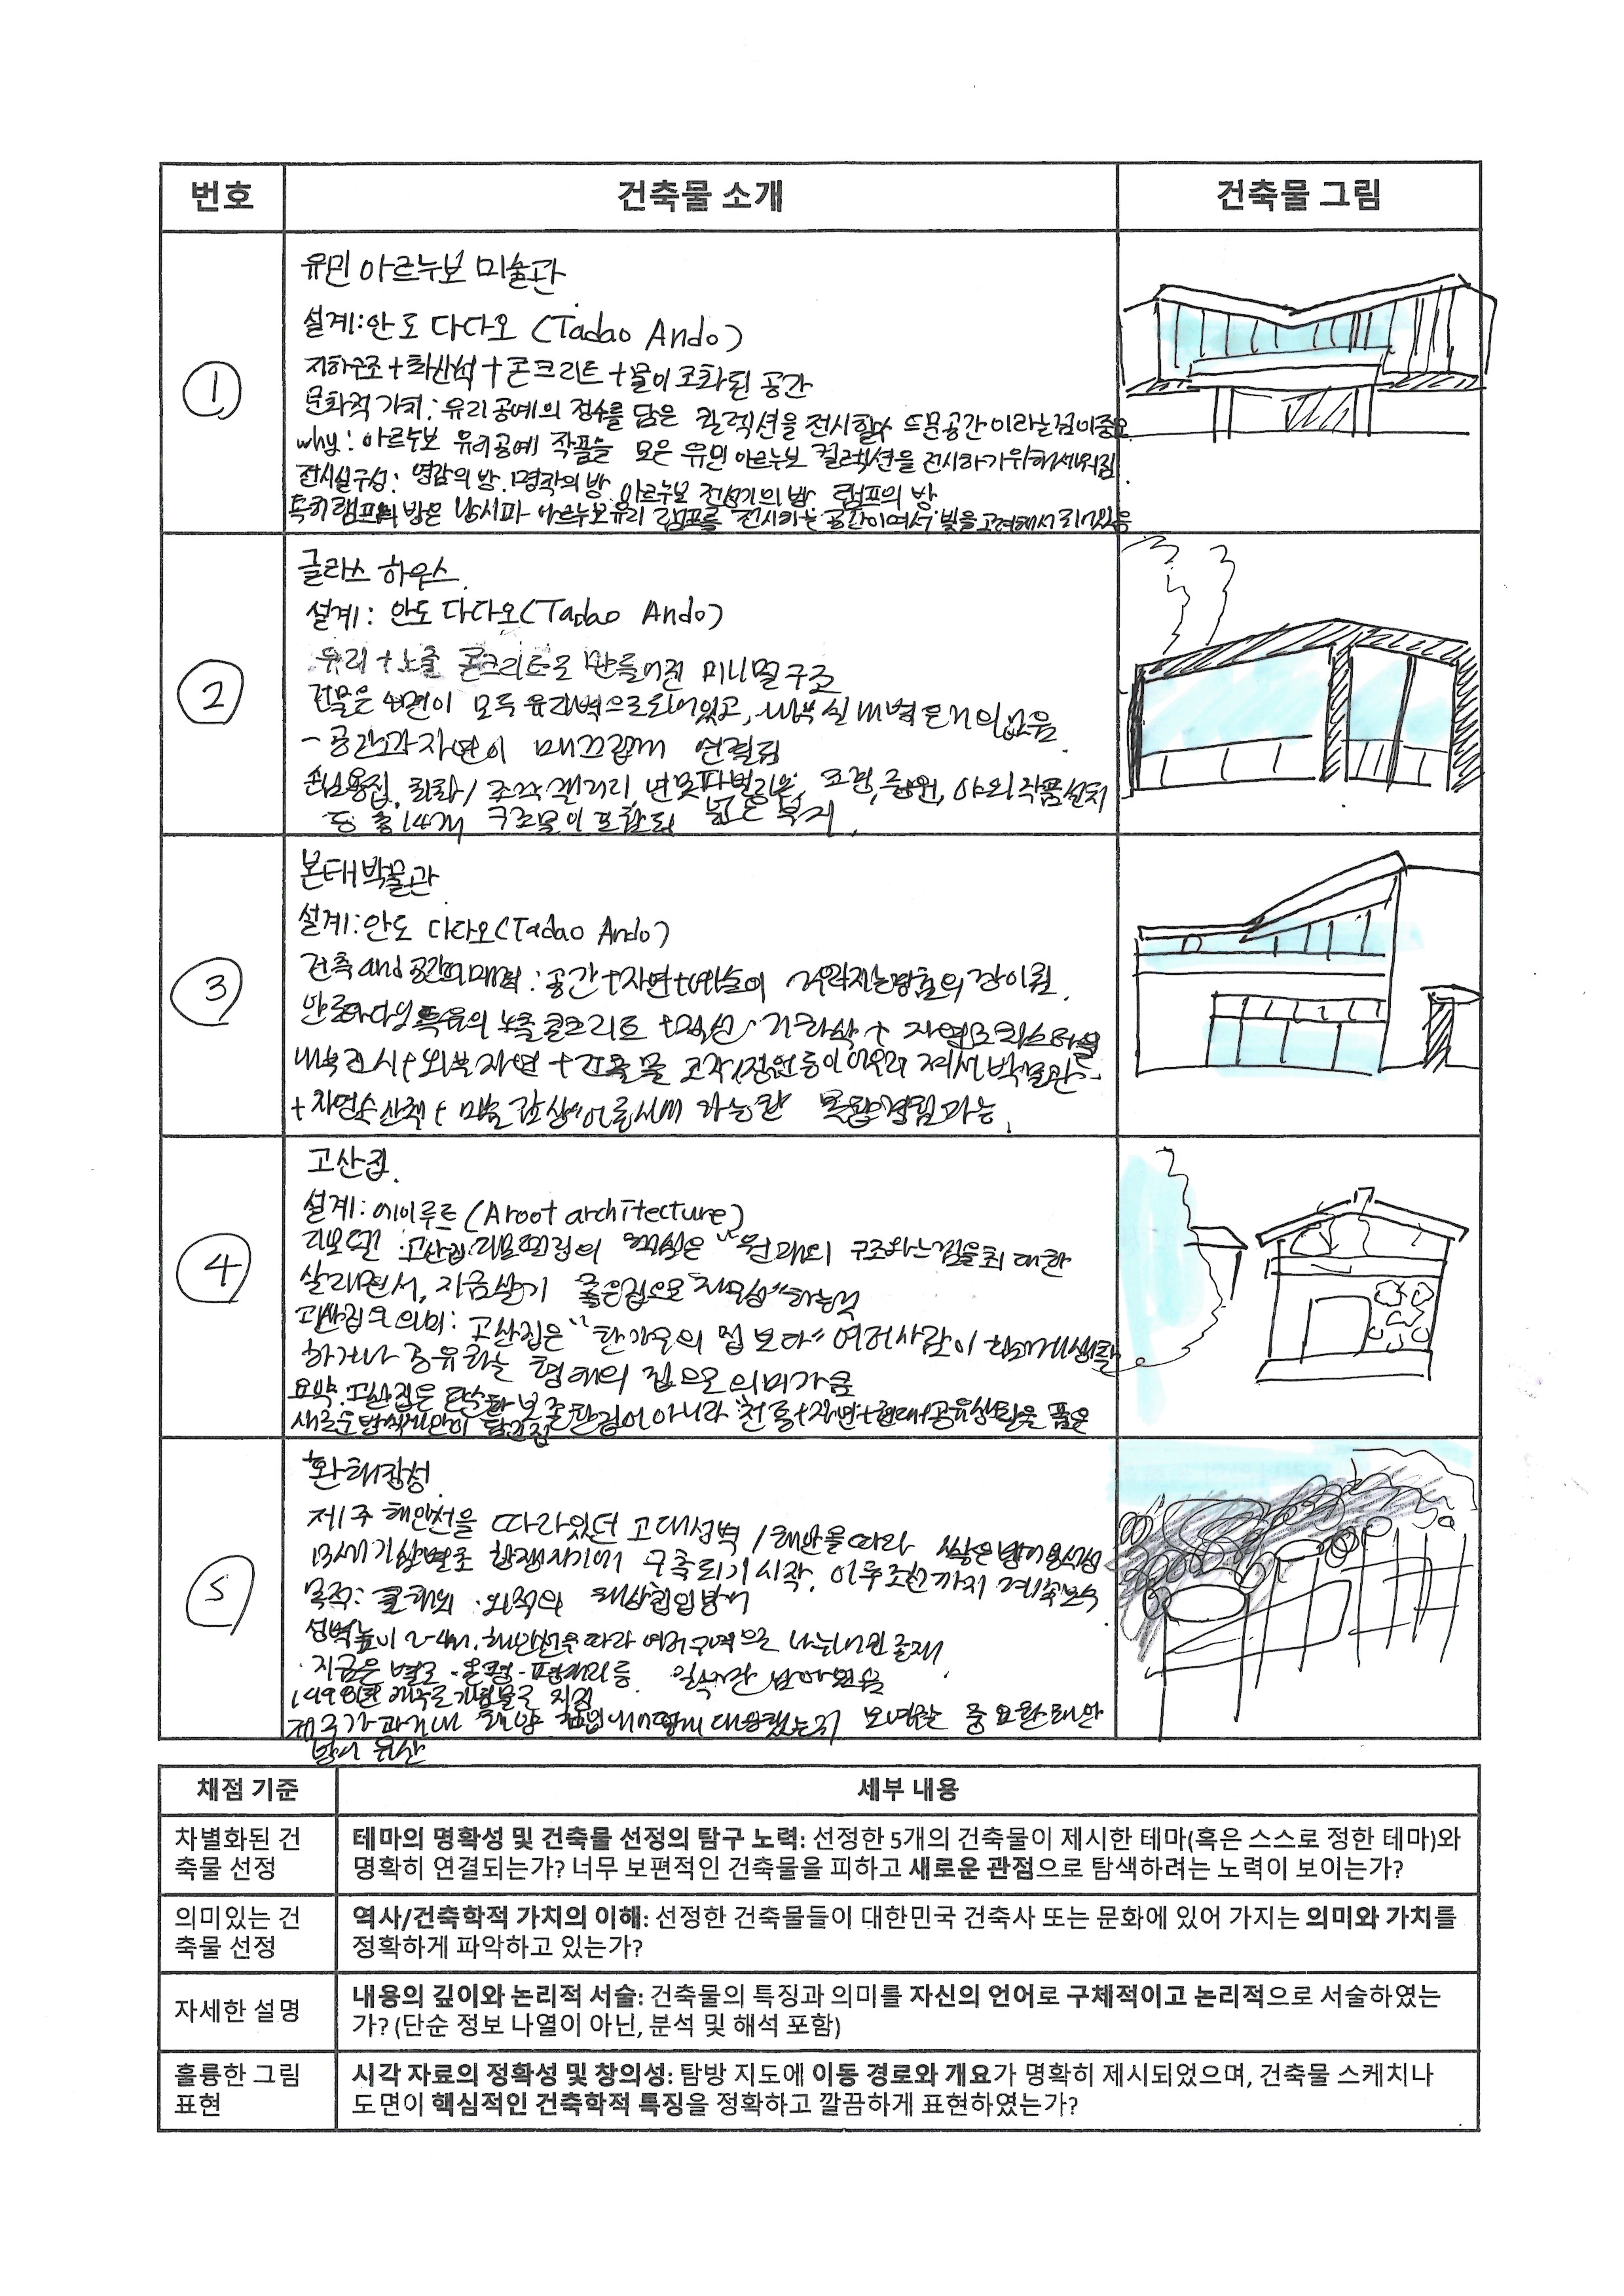 번호 건축물 소개 건축물 그림
①
유민 아르누보 미술관
설계: 안도 다다오 (Tadao Ando)
지하구조 + 화산석 + 콘크리트 + 물이 조화된 공간
문화적 가치: 유리공예의 정수를 담은 컬렉션을 전시할 드문공간이라는점이중요
why: 아르누보 유리공예 작품들 모은 유민 아르누보 컬렉션을 전시하기위해세워짐
전시실구성: 영감의 방. 명작의 방 아르누보 전성기의 방 램프의 방
특히 램프의 방은 낭시파 아르누보유리 램프를 전시하는 공간이며서 빛을고려해서
②
글라스 하우스.
설계: 안도 다다오 (Tadao Ando)
유리 + 노출 콘크리트로 만들어진 미니멀구조
건물은 외면이 모두 유리벽으로되어있고, 내부 실내벽 없음.
- 공간과자연이 매끄럽게 연결됨
회화/조각갤러리, 연못파빌리온, 정원, 야외작품설치
등 총 14개 구조물이 포함된 넓은 부지.
③
본태박물관
설계: 안도 다다오 (Tadao Ando)
건축and공간의매력: 공간+자연+예술이 장이됨.
특유의 노출콘크리트 +
내부전시+외부자연+건축물 조각/정원등이 박물관
+ 자연속산책+ 미술감상 가능한 복합경험가능.
④
고산집.
설계: 에이루트 (Aroot architecture)
리모델링의 핵심은 "원래의 구조와느낌을최대한
살리면서, 지금살기 좋은집으로 하는것
고산집의 의미: 고산집은 "한가족의 집보다" 여러사람이 함께생활
하거나 공유하는 형태의 집으로 의미가큼
요약: 고산집은 단순한 보존한집이아니라 전통+자연+현대+공유생활을 품은
⑤
환해장성.
제주 해안선을 따라있던 고대성벽 / 해안을따라 쌓은방어용석성
13세기삼별초 항쟁시기에 구축되기시작, 이후조선까지 계속보수
목적: 외적의 해상침입방어
성벽높이 2~4m. 해안선을 따라 여러구역으로 나누어진 존재.
지금은 별도·온평· 등 일부만 남아있음
1998년 제주도기념물로 지정
제주가과거에 해양 침입에어떻게대응했는지 보여주는 중요한해안
방어 유산
채점 기준 세부 내용
차별화된 건
축물 선정
테마의 명확성 및 건축물 선정의 탐구 노력: 선정한 5개의 건축물이 제시한 테마(혹은 스스로 정한 테마)와
명확히 연결되는가? 너무 보편적인 건축물을 피하고 새로운 관점으로 탐색하려는 노력이 보이는가?
의미있는 건
축물 선정
역사/건축학적 가치의 이해: 선정한 건축물들이 대한민국 건축사 또는 문화에 있어 가지는 의미와 가치를
정확하게 파악하고 있는가?
자세한 설명
내용의 깊이와 논리적 서술: 건축물의 특징과 의미를 자신의 언어로 구체적이고 논리적으로 서술하였는
가? (단순 정보 나열이 아닌, 분석 및 해석 포함)
훌륭한 그림
표현
시각 자료의 정확성 및 창의성: 탐방 지도에 이동 경로와 개요가 명확히 제시되었으며, 건축물 스케치나
도면이 핵심적인 건축학적 특징을 정확하고 깔끔하게 표현하였는가?